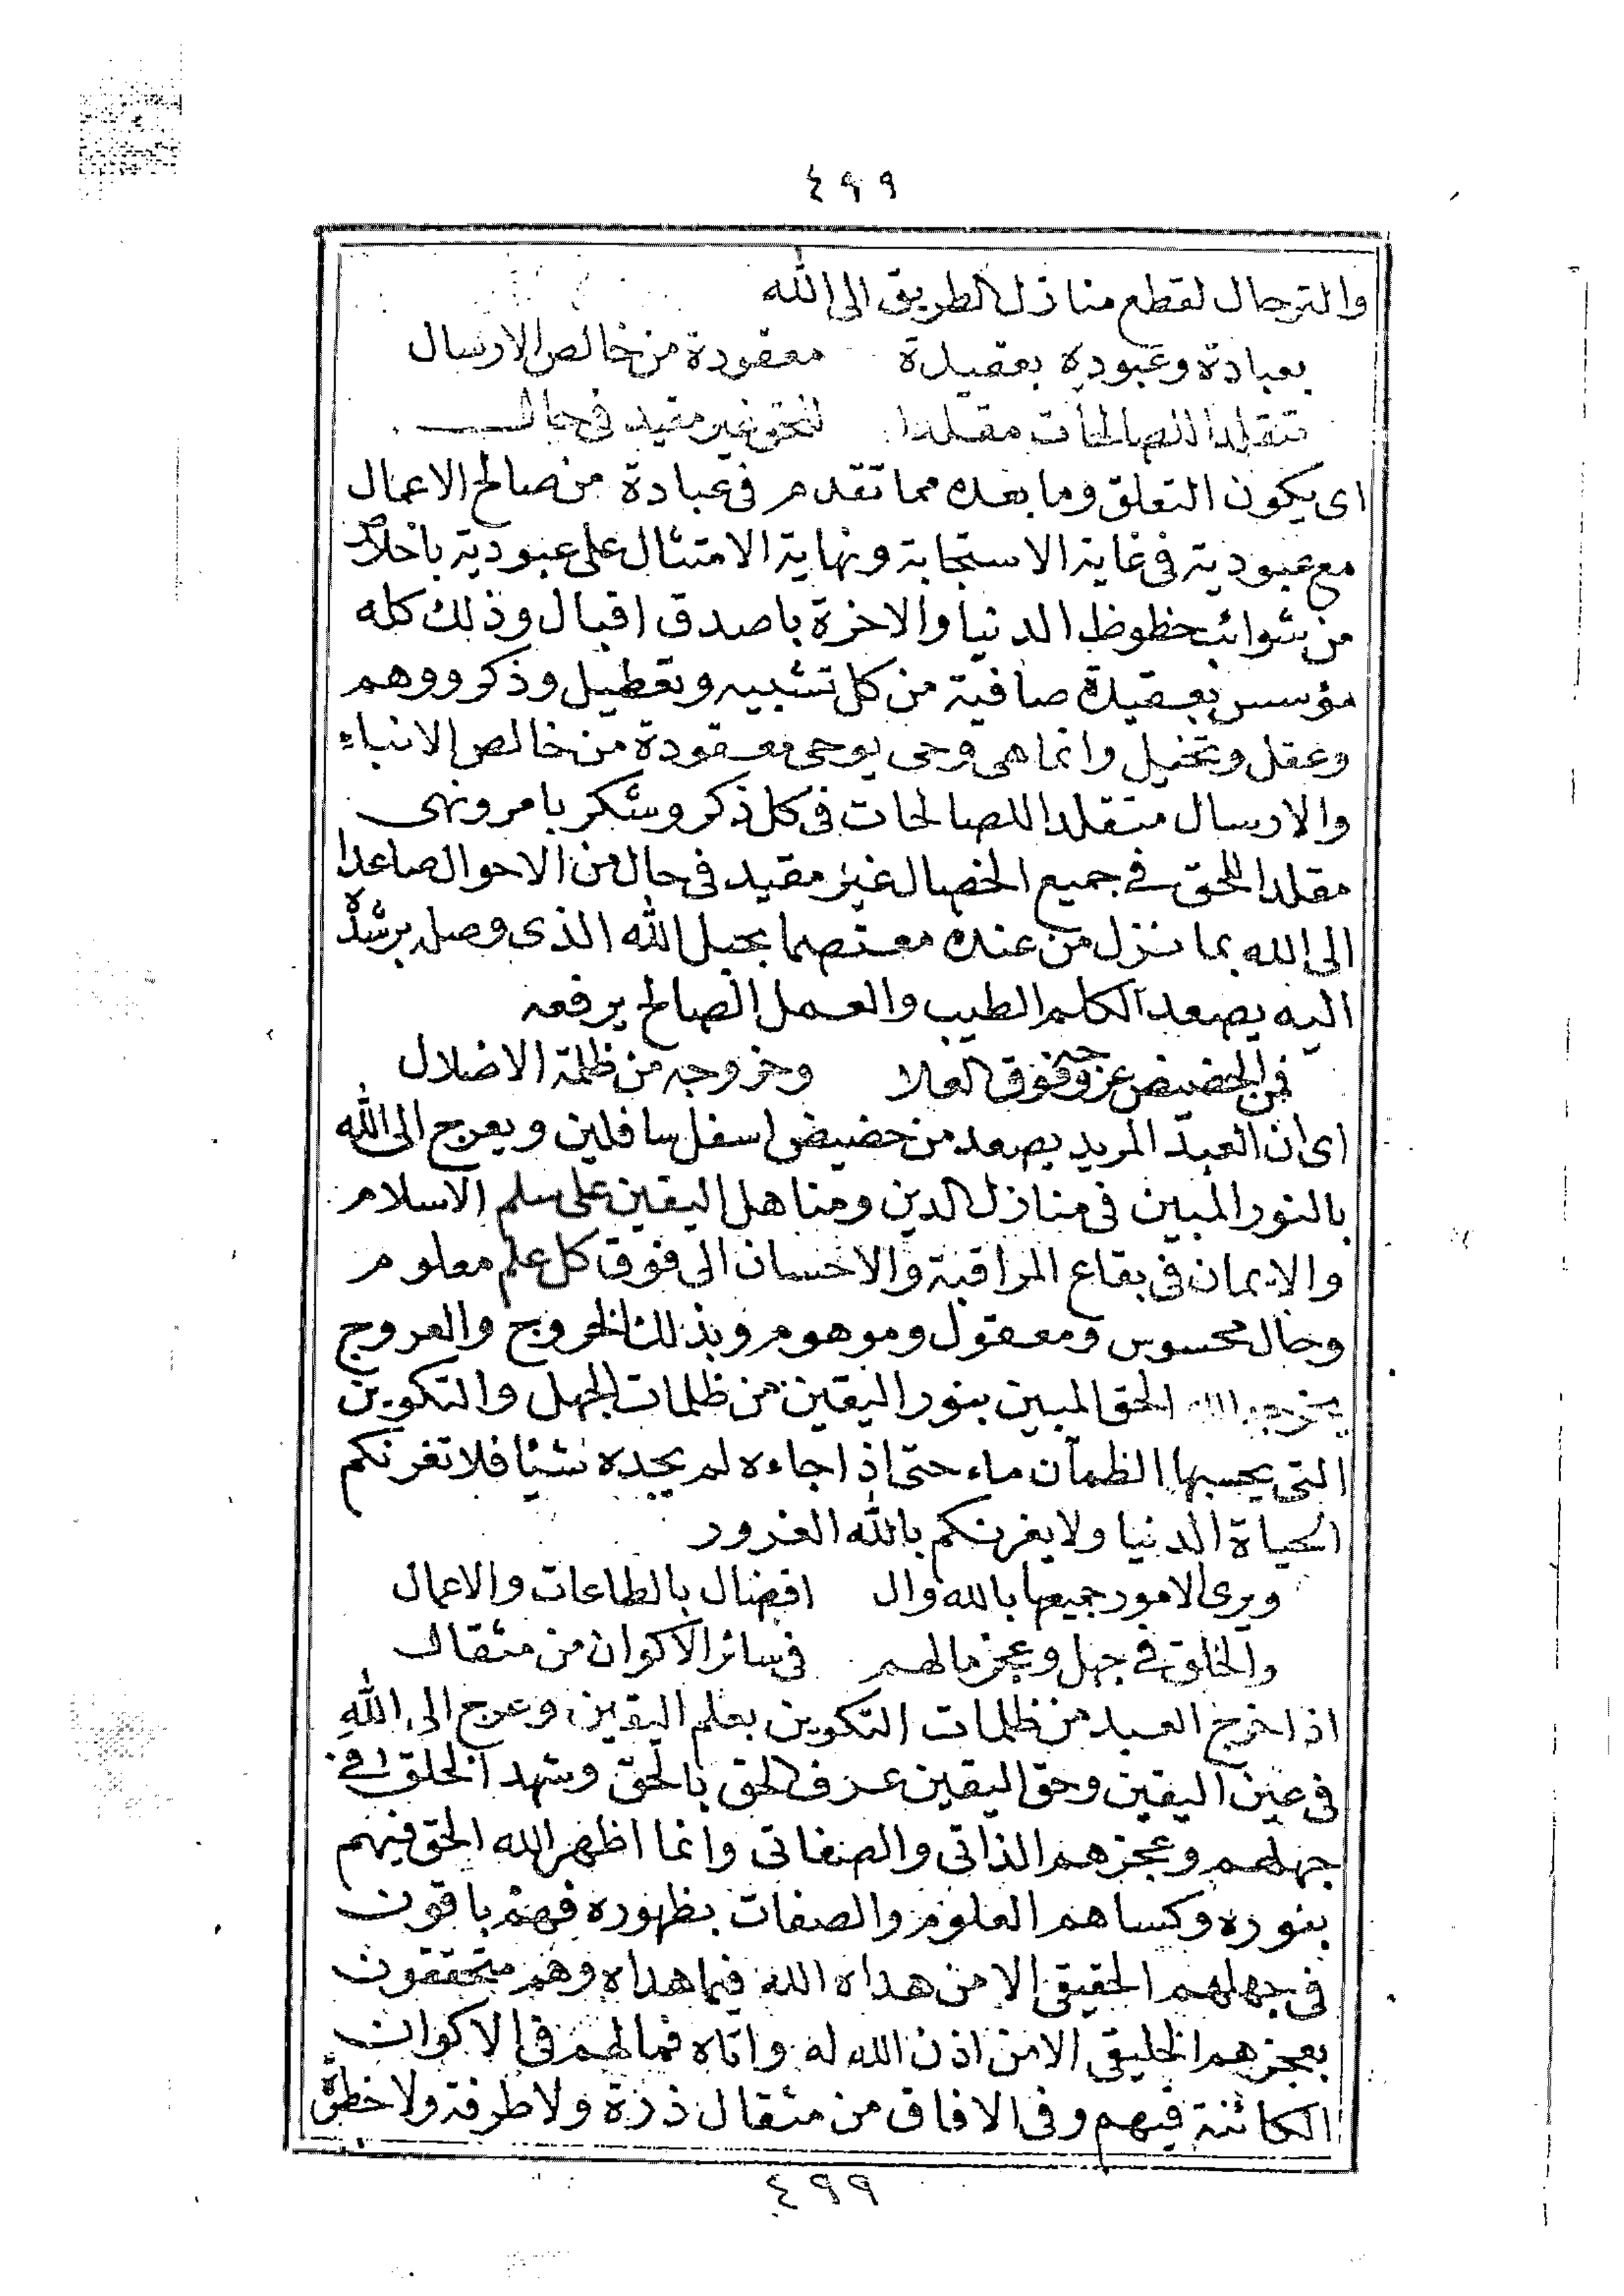 ٤٩٩
والترحال لقطع منازل الطريق الى الله
بعبادة وعبوده بعقيدة معقودة من خالص الارسال
متقلدا للصالحات مقلدا للحق غير مقيد فى حال
اى يكون التعلق وما بعده مما تقدم فى عبادة من صالح الاعمال
مع عبودية فى غاية الاستجابة ونهاية الامتثال على عبودية باخلاص
من شوائب حظوظ الدنيا والاخرة باصدق اقبال وذلك كله
مؤسس بعقيدة صافية من كل تشبيه وتعطيل وذكر ووهم
وعقل وتخيل وانما هى وحى يوحى معقودة من خالص الانباء
والارسال متقلدا للصالحات فى كل ذكر وشكر بامر ونهى
مقلدا للحق فى جميع الخصال غير مقيد فى حال من الاحوال صاعدا
الى الله بما نزل من عنده معتصما بحبل الله الذى وصله برشده
اليه يصعد الكلم الطيب والعمل الصالح يرفعه
فمن الحضيض عروجه فوق العلا وخروجه من ظلمة الاضلال
اى ان العبد المريد يصعد من حضيض اسفل سافلين ويعرج الى الله
بالنور المبين فى منازل الدين ومناهل اليقين على سلم الاسلام
والايمان فى بقاع المراقبة والاحسان الى فوق كل علم معلوم
وحال محسوس ومعقول وموهوم وبذلك الخروج والعروج
يخرجه الله الحق المبين بنور اليقين من ظلمات الجهل والتكوين
التى يحسبها الظمآن ماء حتى اذا جاءه لم يجده شيئا فلا تغرنكم
الحياة الدنيا ولا يغرنكم بالله الغرور
ويرى الامور جميعها بالله وال افضال بالطاعات والاعمال
والخلق فى جهل وعجز مالهم فى سائر الاكوان من مثقال
اذا خرج العبد من ظلمات التكوين بعلم اليقين وعرج الى الله
فى عين اليقين وحق اليقين عرف الحق بالحق وشهد الخلق فى
جهلهم وعجزهم الذاتى والصفاتى وانما اظهر الله الحق فيهم
بنوره وكساهم العلوم والصفات بظهوره فهم باقون
فى جهلهم الحقيقى الا من هداه الله فيما هداه وهم متحققون
بعجزهم الخليقى الا من اذن الله له واتاه فمالهم فى الاكوان
الكائنة فيهم وفى الافاق من مثقال ذرة ولا طرفة ولا خطرة
٤٩٩